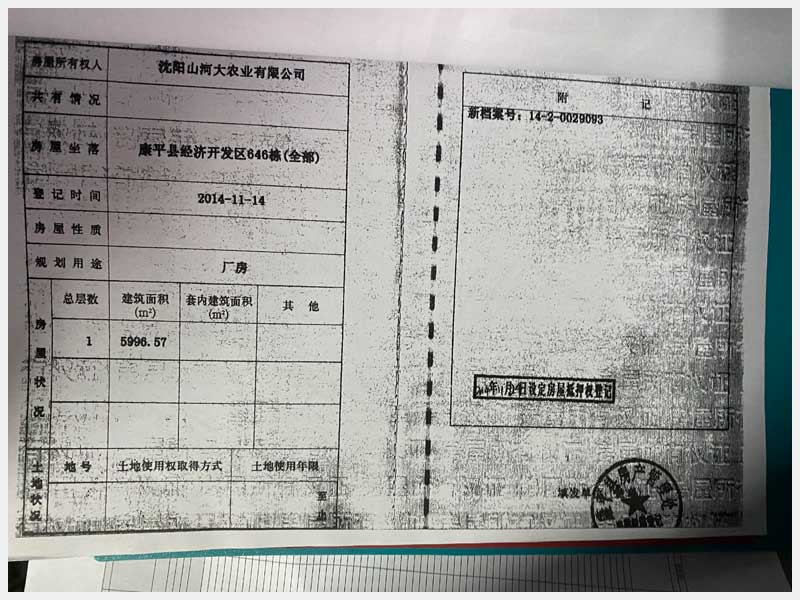 房屋所有权人 沈阳山河大农业有限公司
共有情况
房屋坐落 康平县经济开发区646栋(全部)
登记时间 2014-11-14
房屋性质
规划用途 厂房
房屋状况
总层数 建筑面积(m²) 套内建筑面积(m²) 其他
1 5996.57
土地状况
地号 土地使用权取得方式 土地使用年限
至
止
附记
新档案号：14-2-0029093
日设定房屋抵押权登记
填发单